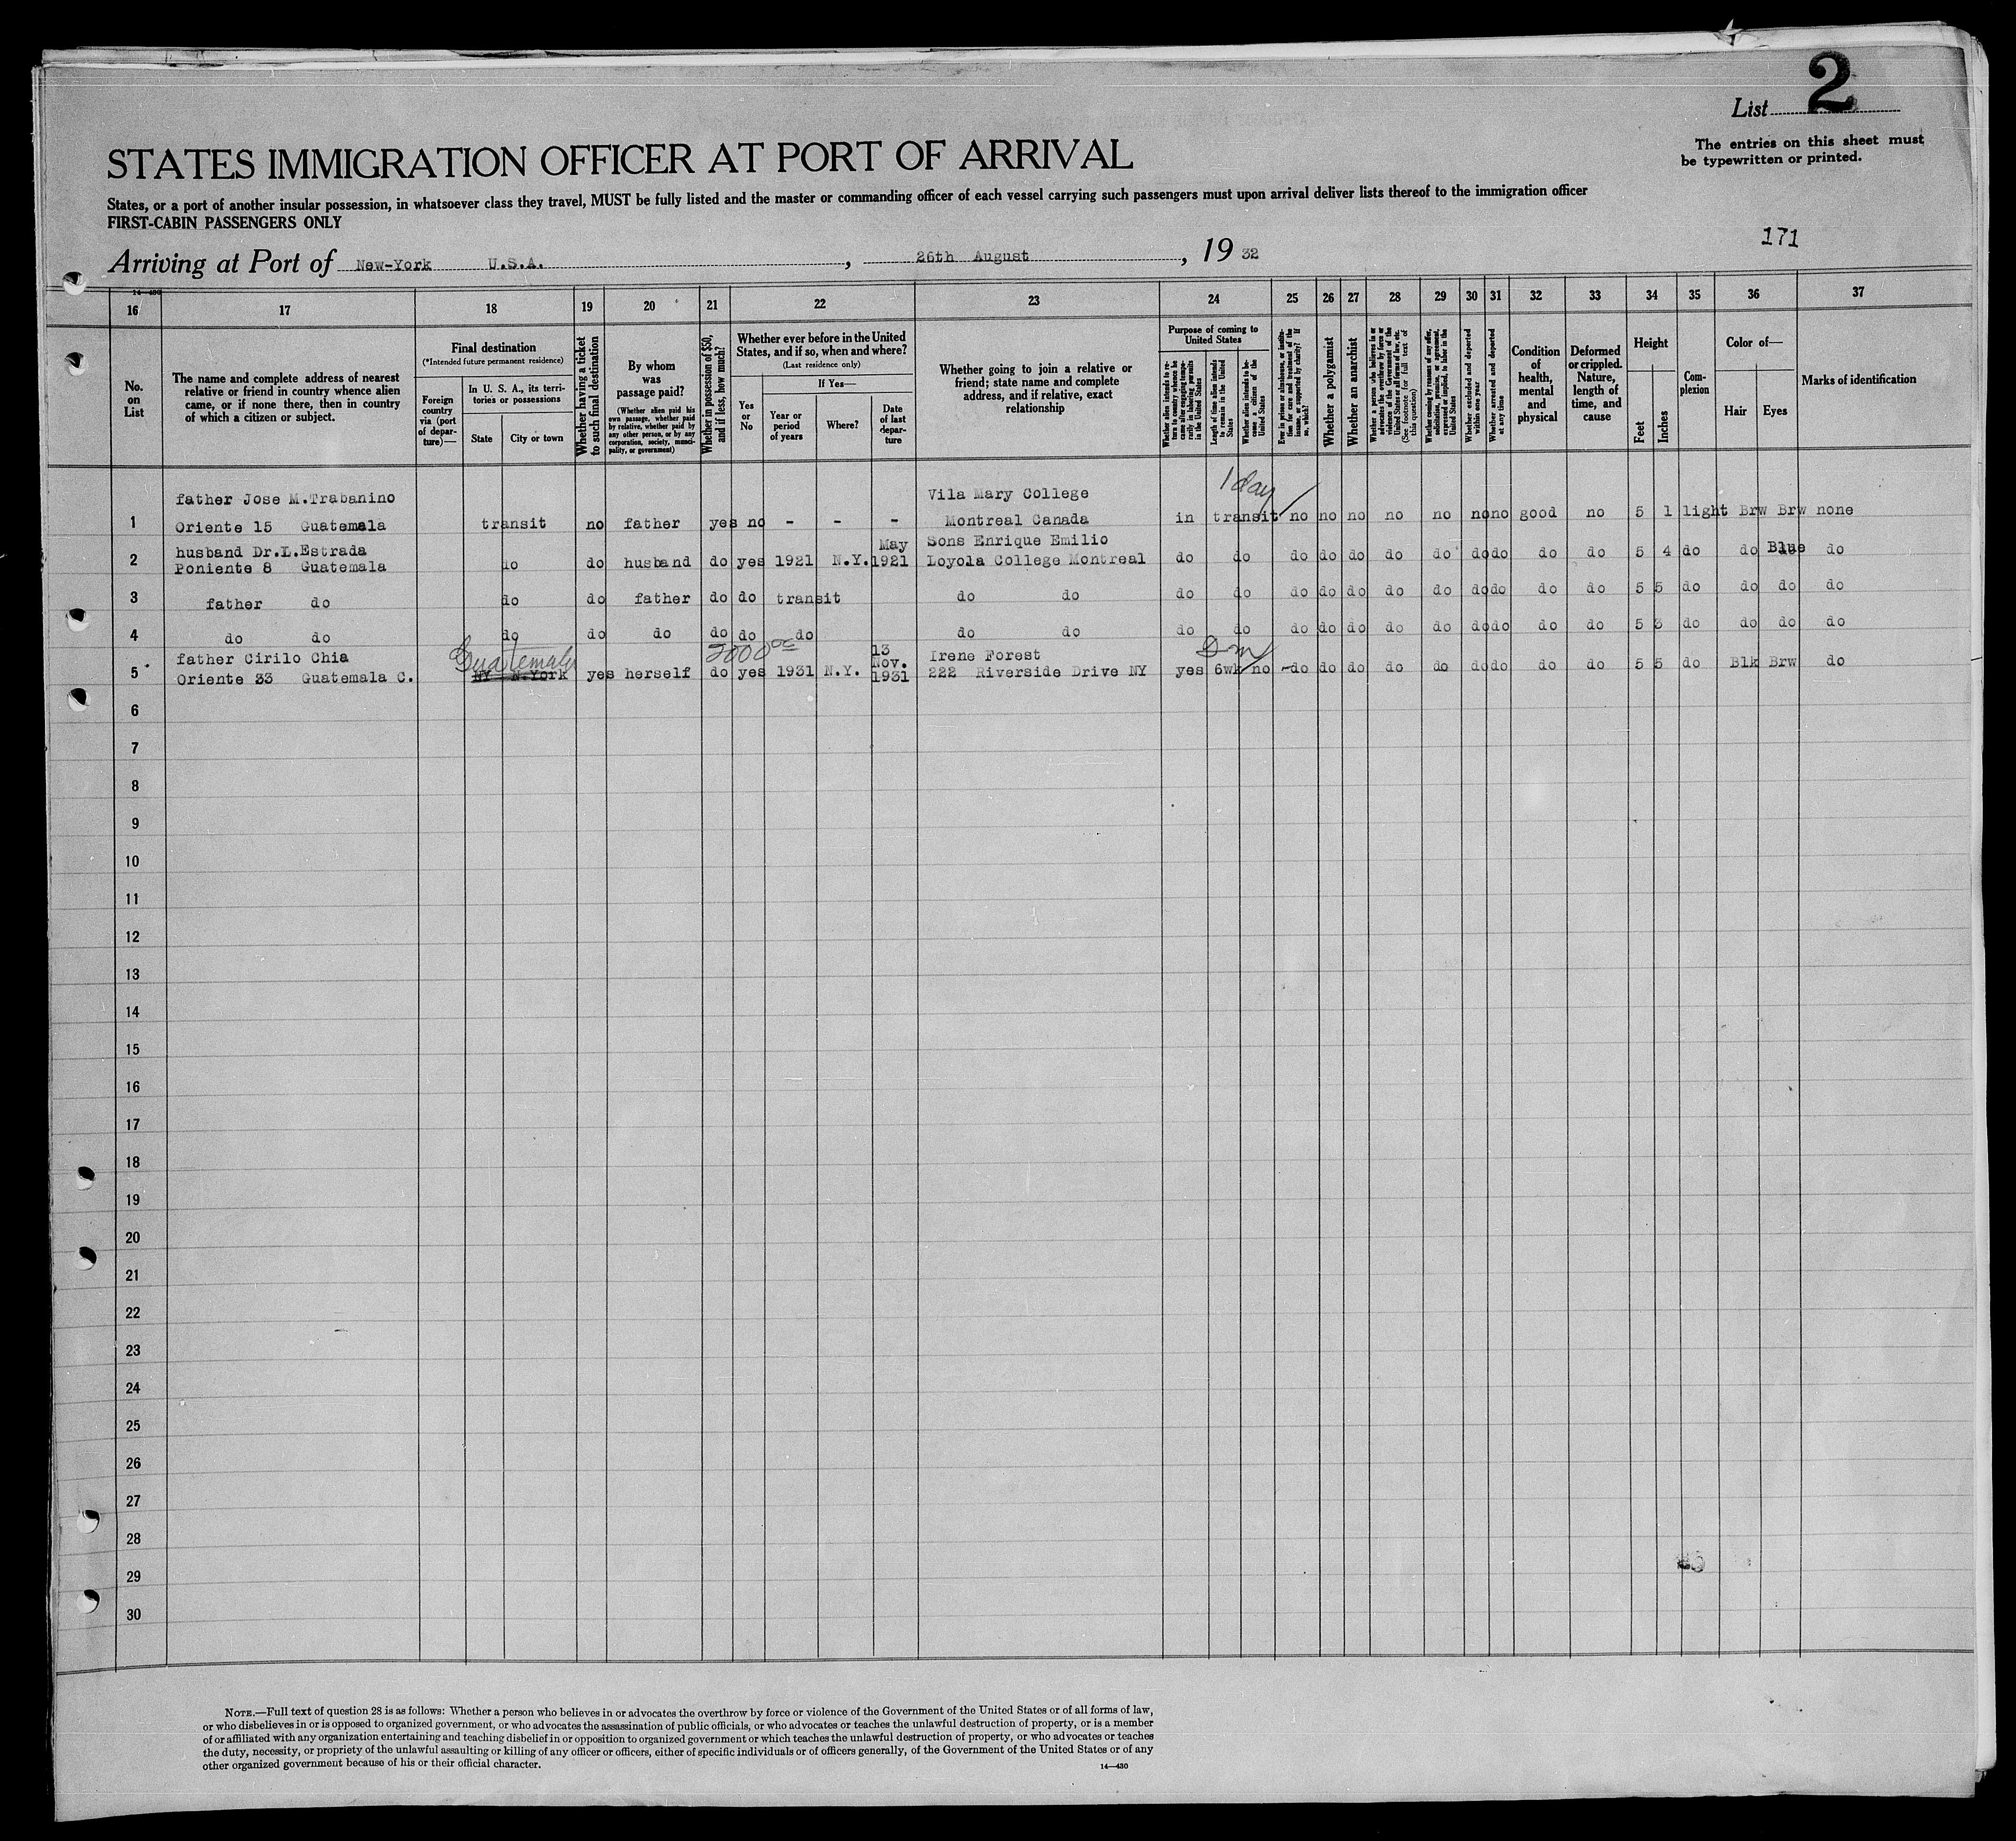 List 2
The entries on this sheet must
be typewritten or printed.
STATES IMMIGRATION OFFICER AT PORT OF ARRIVAL
States, or a port of another insular possession, in whatsoever class they travel, MUST be fully listed and the master or commanding officer of each vessel carrying such passengers must upon arrival deliver lists thereof to the immigration officer
FIRST-CABIN PASSENGERS ONLY
171
Arriving at Port of New-York U.S.A. , 26th August , 19 32
14—430
16 17 18 19 20 21 22 23 24 25 26 27 28 29 30 31 32 33 34 35 36 37
No.
on
List
The name and complete address of nearest
relative or friend in country whence alien
came, or if none there, then in country
of which a citizen or subject.
Final destination
(*Intended future permanent residence)
Foreign
country
via (port
of depar-
ture)—
In U. S. A., its terri-
tories or possessions
State
City or town
Whether having a ticket
to such final destination
By whom
was
passage paid?
(Whether alien paid his
own passage, whether paid
by relative, whether paid by
any other person, or by any
corporation, society, munici-
pality, or government)
Whether in possession of $50,
and if less, how much?
Whether ever before in the United
States, and if so, when and where?
(Last residence only)
Yes
or
No
If Yes—
Year or
period
of years
Where?
Date
of last
depar-
ture
Whether going to join a relative or
friend; state name and complete
address, and if relative, exact
relationship
Purpose of coming to
United States
Whether alien intends to re-
turn to country whence he
came after engaging tempo-
rarily in laboring pursuits
in the United States
Length of time alien intends
to remain in the United
States
Whether alien intends to be-
come a citizen of the
United States
Ever in prison or almshouse, or institu-
tion for care and treatment of the
insane, or supported by charity? If
so, which?
Whether a polygamist
Whether an anarchist
Whether a person who believes in or
advocates the overthrow by force or
violence of the Government of the
United States or all forms of law, etc.
(See footnote for full text of
this question)
Whether coming by reason of any offer,
solicitation, promise, or agreement,
expressed or implied, to labor in the
United States
Whether excluded and deported
within one year
Whether arrested and deported
at any time
Condition
of
health,
mental
and
physical
Deformed
or crippled.
Nature,
length of
time, and
cause
Height
Feet
Inches
Com-
plexion
Color of—
Hair
Eyes
Marks of identification
father Jose M.Trabanino Vila Mary College 1 day
1 Oriente 15 Guatemala transit no father yes no - - - Montreal Canada in transit no no no no no no no good no 5 1 light Brw Brw none
husband Dr.L.Estrada May Sons Enrique Emilio
2 Poniente 8 Guatemala do do husband do yes 1921 N.Y. 1921 Loyola College Montreal do do do do do do do do do do do 5 4 do do Blue do
3 father do do do father do do transit do do do do do do do do do do do do do 5 5 do do do do
4 do do do do do do do do do do do do do do do do do do do do do 5 3 do do do do
father Cirilo Chia Guatemala 2000 00 13 Nov. Irene Forest
5 Oriente 33 Guatemala C. NY N.York yes herself do yes 1931 N.Y. 1931 222 Riverside Drive NY yes 6wk no -do do do do do do do do do 5 5 do Blk Brw do
6
7
8
9
10
11
12
13
14
15
16
17
18
19
20
21
22
23
24
25
26
27
28
29
30
NOTE.—Full text of question 28 is as follows: Whether a person who believes in or advocates the overthrow by force or violence of the Government of the United States or of all forms of law,
or who disbelieves in or is opposed to organized government, or who advocates the assassination of public officials, or who advocates or teaches the unlawful destruction of property, or is a member
of or affiliated with any organization entertaining and teaching disbelief in or opposition to organized government or which teaches the unlawful destruction of property, or who advocates or teaches
the duty, necessity, or propriety of the unlawful assaulting or killing of any officer or officers, either of specific individuals or of officers generally, of the Government of the United States or of any
other organized government because of his or their official character.
14—430